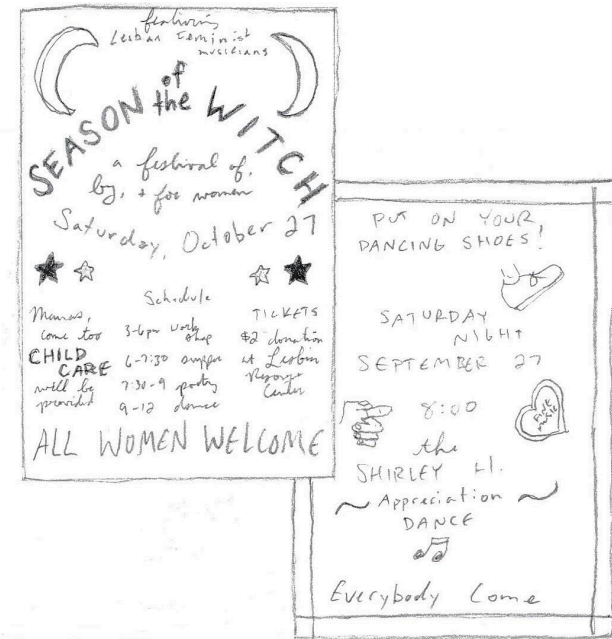 featuring
Lesbian Feminist
musicians
SEASON of the WITCH
a festival of,
by, + for women
Saturday, October 27
Mamas,
come too
CHILD
CARE
will be
provided
Schedule
3-6pm work
shop
6-7:30 supper
7:30-9 poetry
9-12 dance
TICKETS
$2 donation
at Lesbian
Resource
Center
ALL WOMEN WELCOME
PUT ON YOUR
DANCING SHOES!
SATURDAY
NIGHT
SEPTEMBER 27
8:00
the
SHIRLEY H.
~ Appreciation ~
DANCE
FINE
MUSIC
Everybody Come